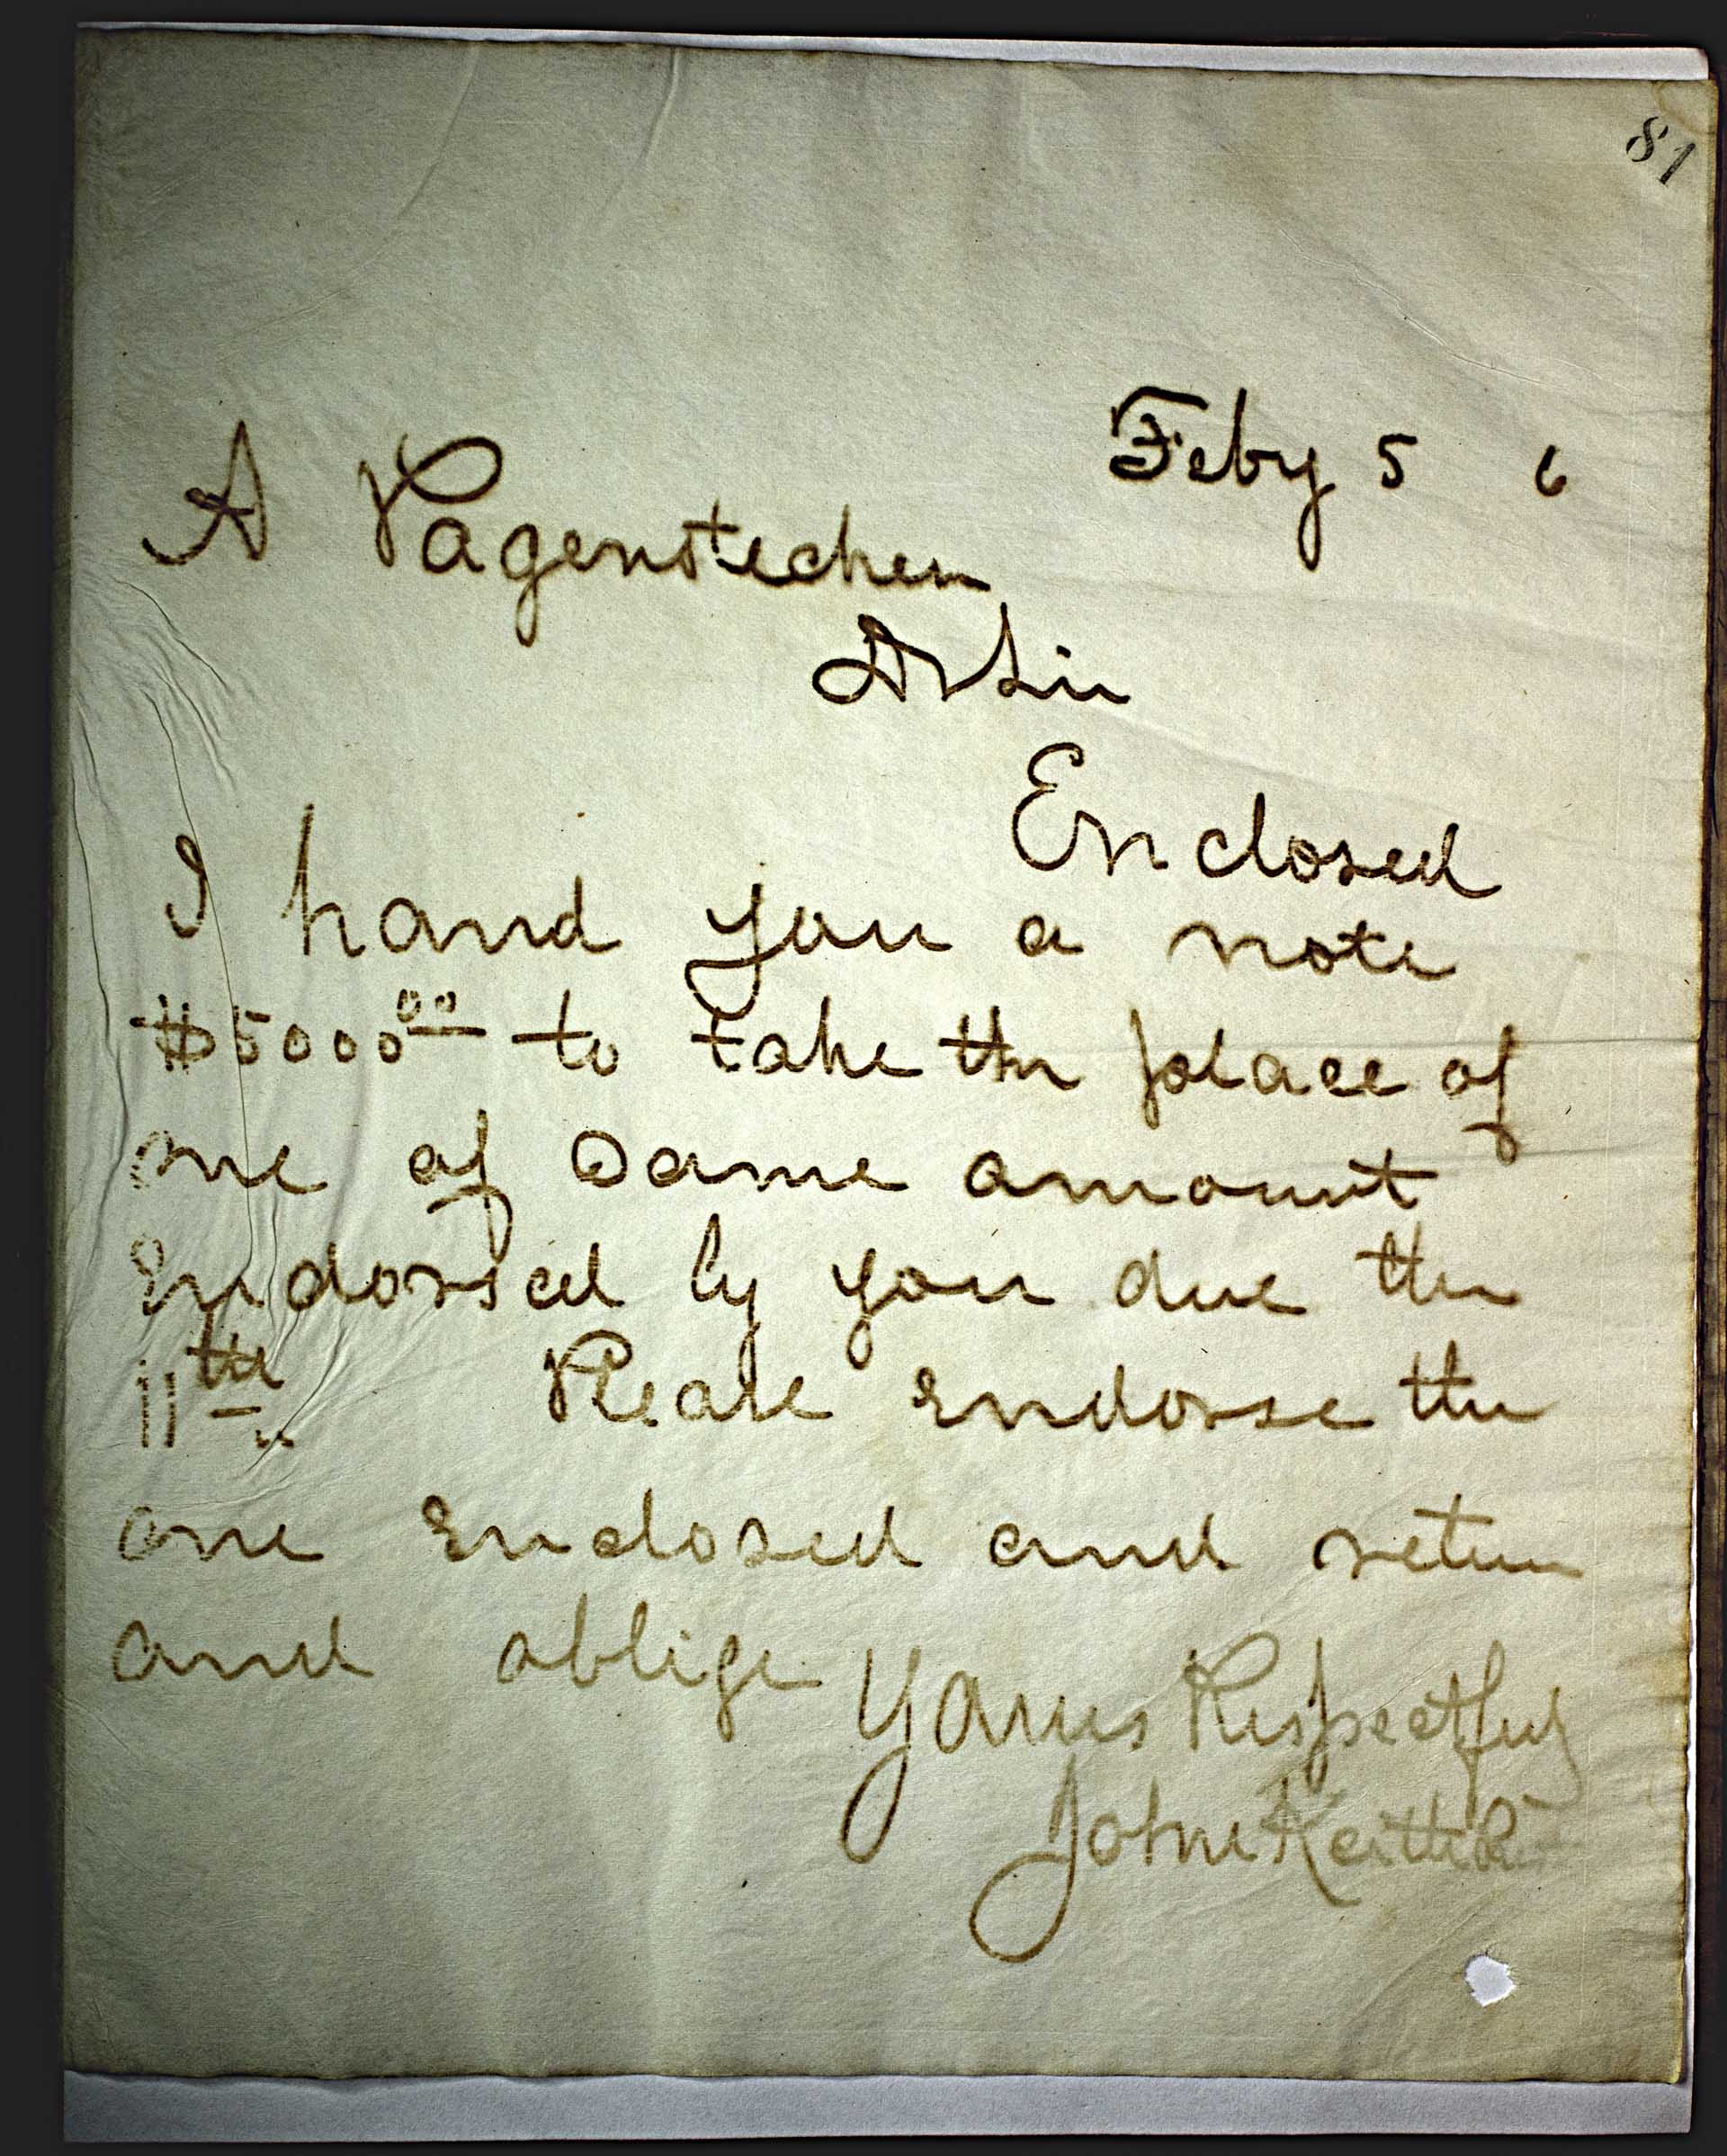 81
Feby 5 6
A Pagenstecher
Dr Sir
Enclosed
I hand you a note
$5000.00 to take the place of
one of same amount
Endorsed by you due the
11th Please endorse the
one enclosed and return
and oblige Yours Respectfuly
John Keith